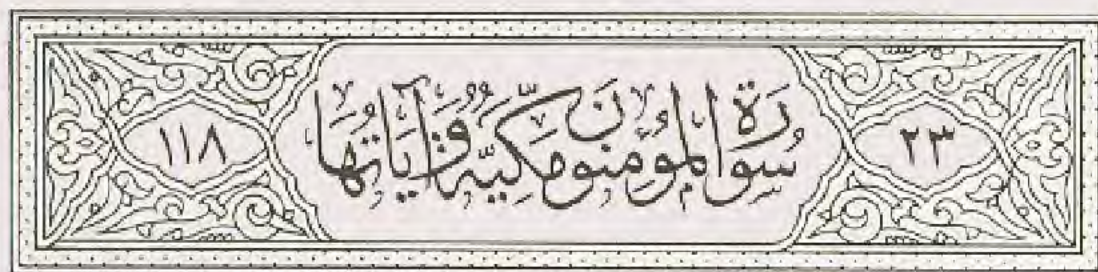 ٢٣ سُورَةُ الْمُؤْمِنُونَ مَكِّيَّةٌ وَآيَاتُهَا ١١٨